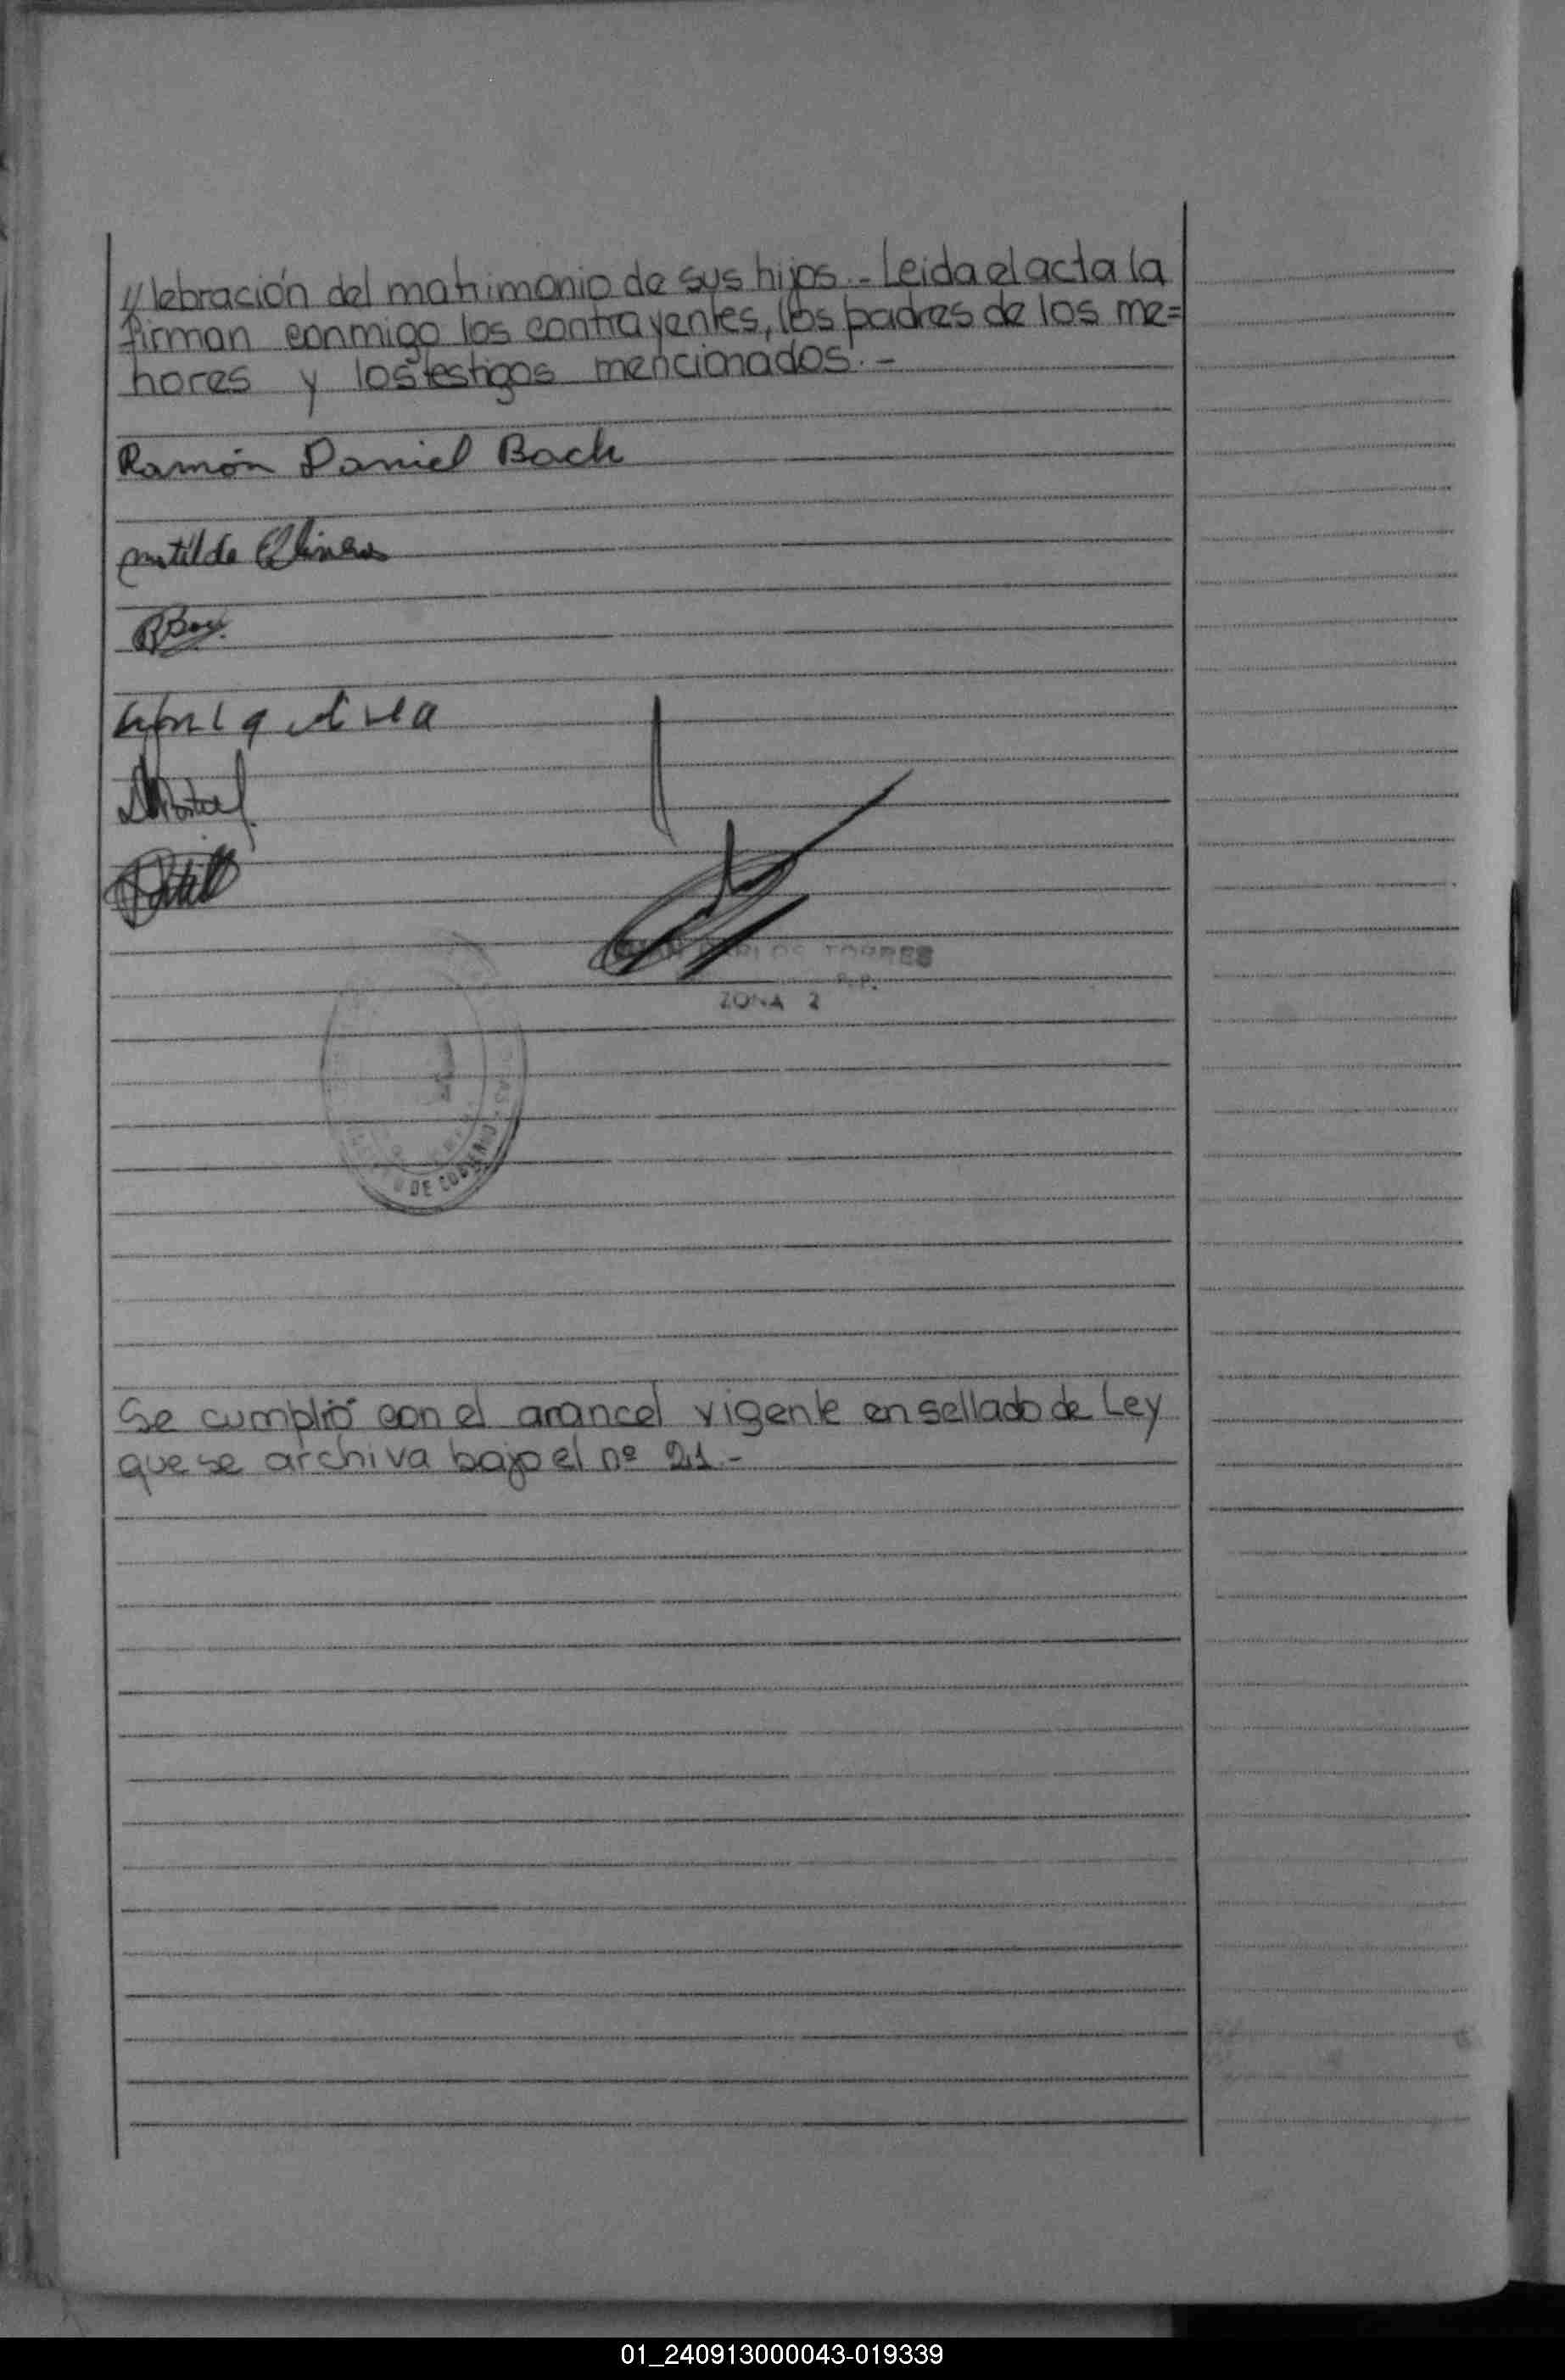 //lebración del matrimonio de sus hijos.- Leida el acta la
firman conmigo los contrayentes, los padres de los me=
nores y los testigos mencionados.-
Ramón Daniel Bach
Matilde
CARLOS TORRES
ZONA 2
DE
Se cumplió con el arancel vigente en sellado de Ley
que se archiva bajo el nº 21.-
01_240913000043-019339